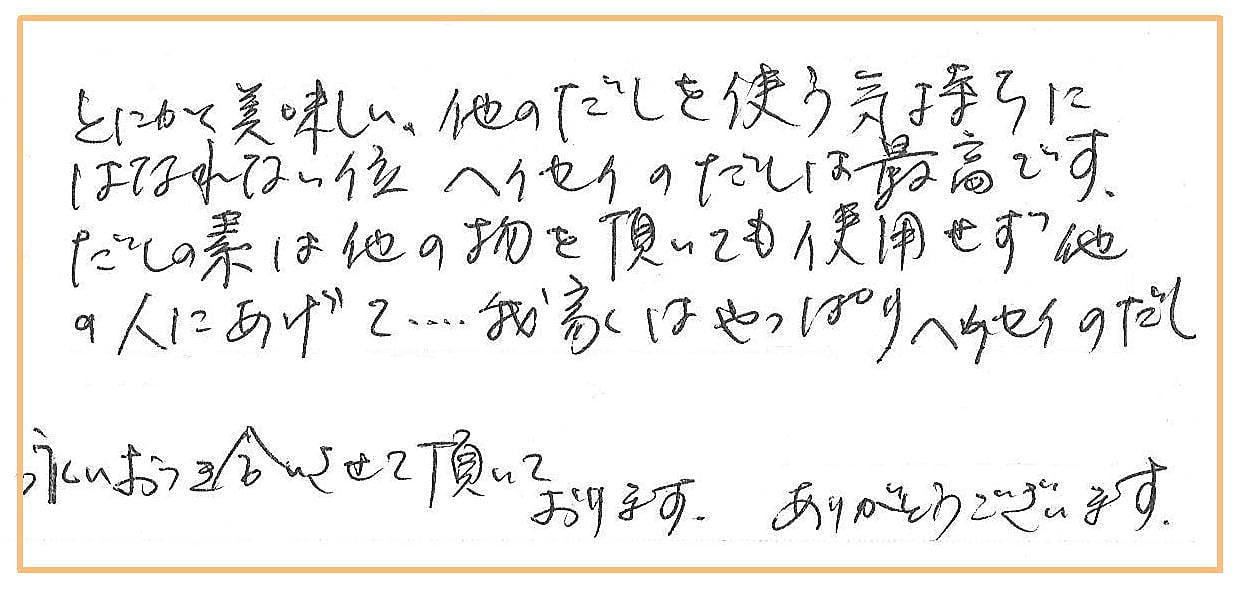 とにかく美味しい、他のだしを使う気持ちに
はなれない位 ヘイセイのだしは最高です。
だしの素は他の物を頂いても使用せず他
の人にあげて‥‥我家はやっぱりヘイセイのだし
永いおつき合いさせて頂いて
おります。 ありがとうございます。